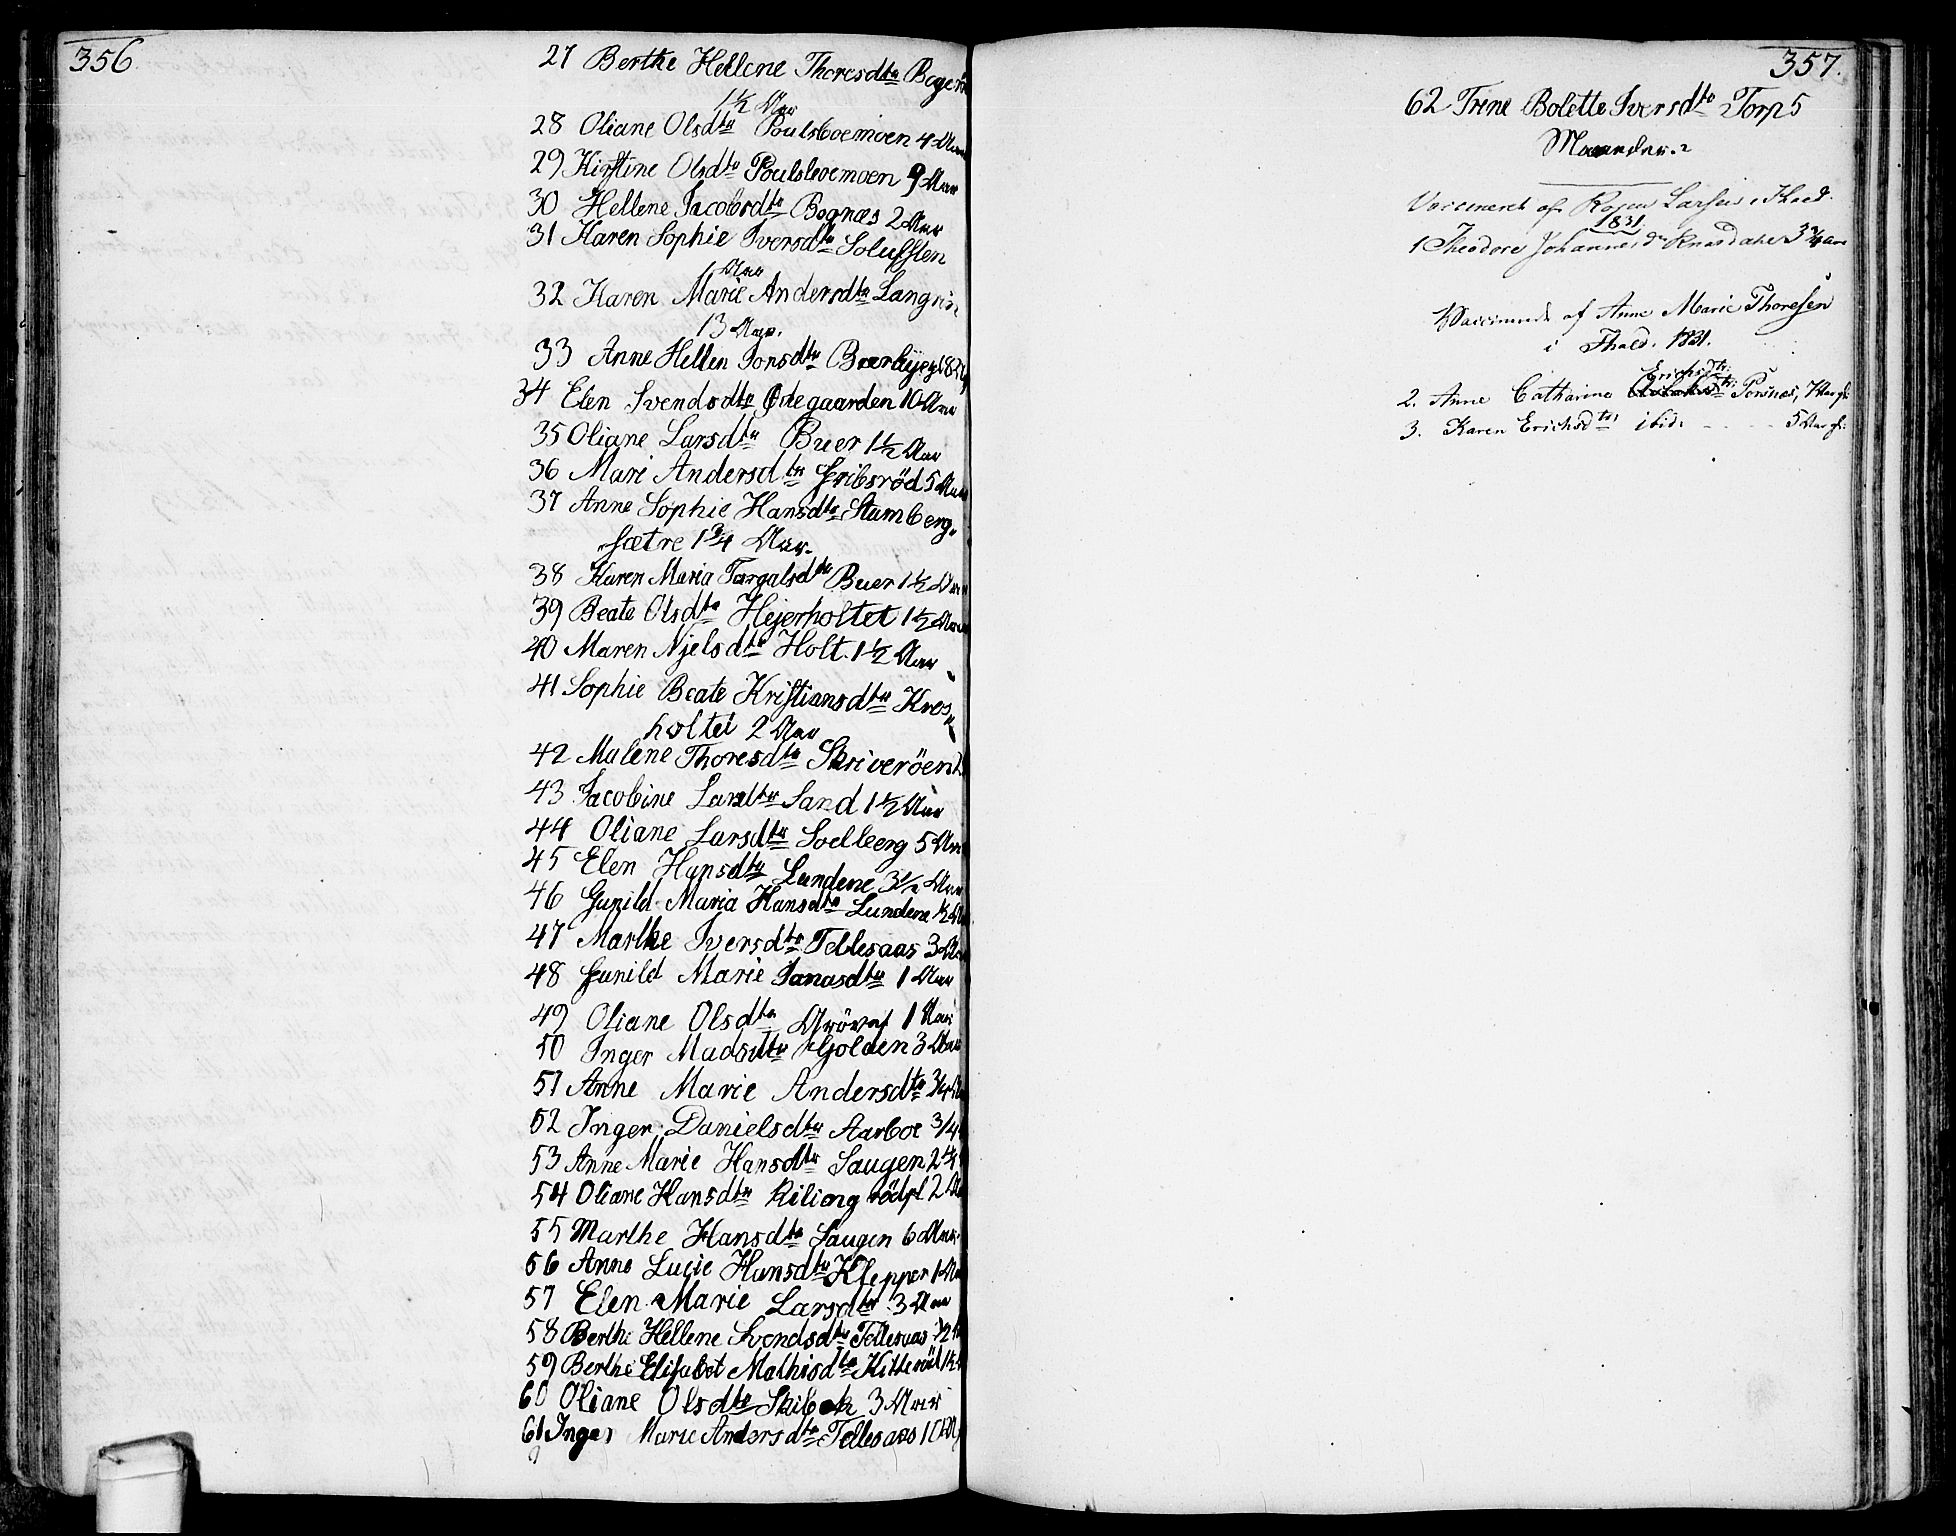 356
27 Berthe Hellene Thoresdtr
1½ Aar
28 Oliane Olsdtr Poulsboemoen 4 Aar
29 Kirstine Olsdtr Poulsboemoen 9 Aar
30 Hellene Jacobsdtr Bognæs 2 Aar
31 Karen Sophie Iversdtr
1 Aar
32 Karen Marie Andersdtr
13 Aar.
33 Anne Hellen Jonsdtr
34 Elen Svendsdtr Ødegaarden 10 Aar
35 Oliane Larsdtr Buer 1½ Aar
36 Mari Andersdtr Gribsröd 5 Aar
37 Anne Sophie Hansdtr Stumberg-
sætre 1¾ Aar.
38 Karen Maria Torgalsdtr Buer 1½ Aar
39 Beate Olsdtr Hejerholtet 1½ Aar
40 Maren Njelsdtr Holt. 1½ Aar
41 Sophie Beate Kristiansdtr Kros-
holtet 2 Aar
42 Malene Thoresdtr Skriveröen
43 Jacobine Larsdtr Sand 1½ Aar
44 Oliane Larsdtr Soelberg 5 Aar
45 Elen Hansdtr Lundene 3½ Aar
46 Gunild Maria Hansdtr Lundene ½ Aar
47 Marthe Iversdtr Tellesaas 3 Aar
48 Gunild Marie Janasdtr 1 Aar
49 Oliane Olsdtr 1 Aar
50 Inger Madsdtr 3 Aar
51 Anne Marie Andersdtr ¾ Aar
52 Inger Danielsdtr Aarboe 3/4
53 Anne Marie Hansdtr Saugen
54 Oliane Hansdtr 2 Aar
55 Marthe Hansdtr Saugen 6 Aar.
56 Anne Lucie Hansdtr Klepper 1 Aar
57 Elen Marie Larsdtr 3 Aar
58 Berthe Hellene Svendsdtr Tellesaas
59 Berthe Elisabet Mathisdtr Kitteröd
60 Oliane Olsdtr Skibek 3 Aar
61 Inger Marie Andersdtr Tellesaas
357.
62 Trine Bolette Iversdtr Torp 5
Maaneder.
Vaccineret af Larsen i Fhald.
1831
1 Theodore Johannesdr 3¾ Aar
Vaccinerede af Anne Marie Thoresen
i Fhald. 1831.
Erichsdtr.
2. Anne Catharine Torsnæs, 7 Aar gl.
3. Karen Erichsdtr. ibid. - - - - 5 Aar gl.